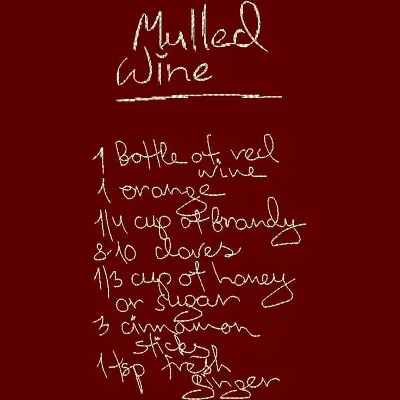 Mulled
Wine
1 Bottle of red
wine
1 orange
1/4 cup of brandy
8-10 cloves
1/3 cup of honey
or sugar
3 cinnamon
sticks
1 tsp fresh
ginger